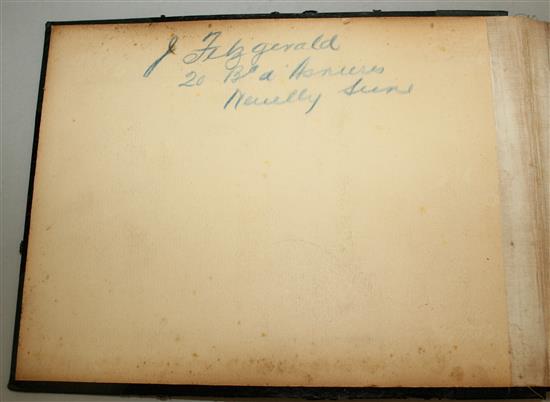 J Fitzgerald
20 Bd d'Asnieres
Neuilly Seine